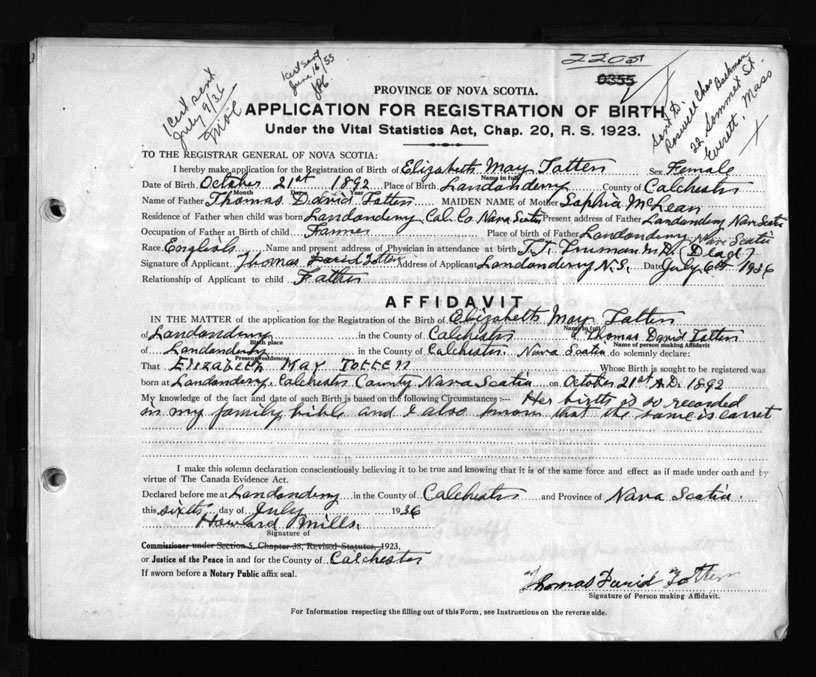 1 Cert sent
July 9/36
1 Cert sent
June 16/55
22051
0355
Sent D.
Roswell Chas Backman
22 Sommet St.
Everett, Mass
PROVINCE OF NOVA SCOTIA.
APPLICATION FOR REGISTRATION OF BIRTH
Under the Vital Statistics Act, Chap. 20, R. S. 1923.
TO THE REGISTRAR GENERAL OF NOVA SCOTIA:
I hereby make application for the Registration of Birth of Elizabeth May Totten Sex Female
Name in full
Date of Birth October 21st 1892 Place of Birth Londonderry County of Colchester
Month Day Year
Name of Father Thomas David Totten MAIDEN NAME of Mother Sophia McLean
Residence of Father when child was born Londonderry Col. Co. Nova Scotia Present address of Father Londonderry Nova Scotia
Occupation of Father at Birth of child Farmer Place of birth of Father Londonderry Nova Scotia
Race English Name and present address of Physician in attendance at birth T. F. M.D. (Dead)
Signature of Applicant Thomas David Totten Address of Applicant Londonderry N.S. Date July 6th 1936
Relationship of Applicant to child Father
AFFIDAVIT
IN THE MATTER of the application for the Registration of the Birth of Elizabeth May Totten
Name in full
of Londonderry in the County of Colchester I Thomas David Totten
Birth place Name of person making Affidavit
of Londonderry in the County of Colchester Nova Scotia do solemnly declare:
Present residence
That ELIZABETH MAY TOTTEN Whose Birth is sought to be registered was
born at Londonderry Colchester County Nova Scotia on October 21st A.D. 1892
My knowledge of the fact and date of such Birth is based on the following Circumstances :— Her birth is so recorded
in my family bible and I also know that the same is correct
I make this solemn declaration conscientiously believing it to be true and knowing that it is of the same force and effect as if made under oath and by
virtue of The Canada Evidence Act.
Declared before me at Londonderry in the County of Colchester and Province of Nova Scotia.
this sixth day of July 1936
Howard Mills.
Signature of
Commissioner under Section 5, Chapter 38, Revised Statutes, 1923,
or Justice of the Peace in and for the County of Colchester
If sworn before a Notary Public affix seal.
Thomas David Totten
Signature of Person making Affidavit.
For Information respecting the filling out of this Form, see Instructions on the reverse side.